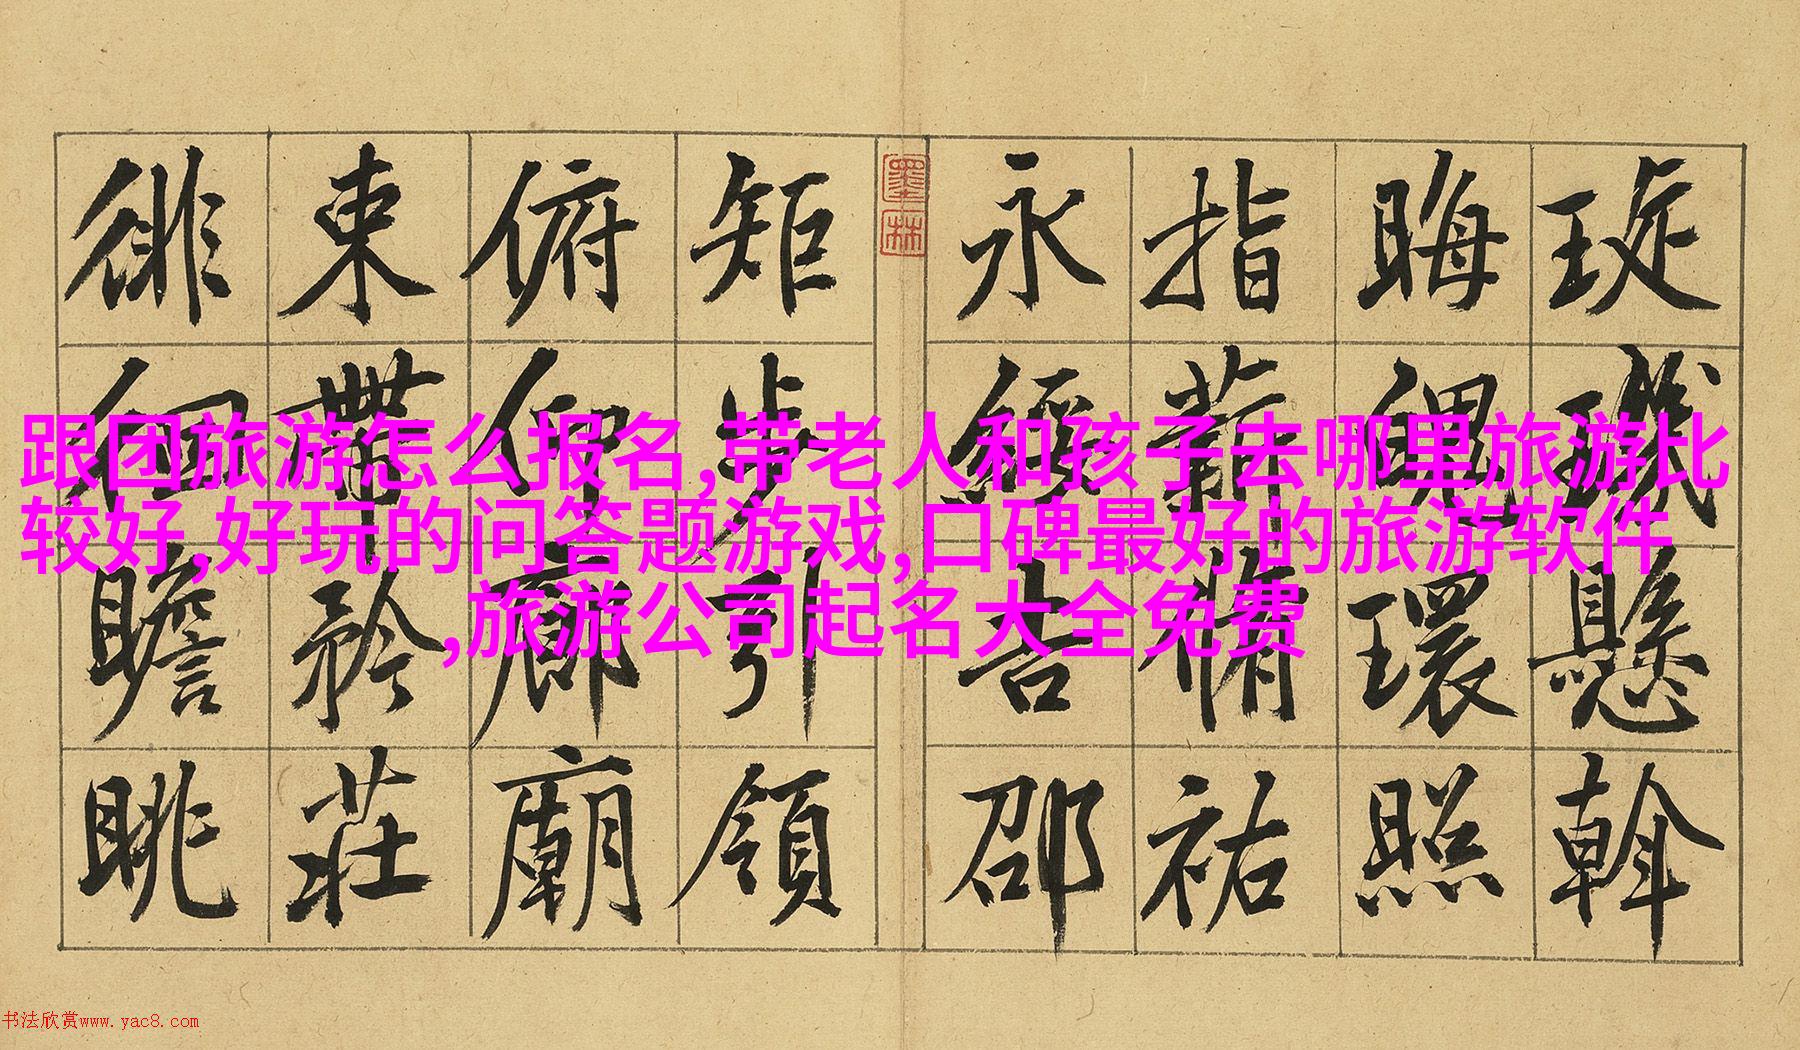 琁璣懸斡
晦魄環照
指薪脩祐
永綏吉邵
墨林
矩步引領
俯仰廊廟
束帶矜莊
徘徊瞻眺
跟团旅游怎么报名,带老人和孩子去哪里旅游比
较好,好玩的问答题游戏,口碑最好的旅游软件
,旅游公司起名大全免费
书法欣赏www.yac8.com